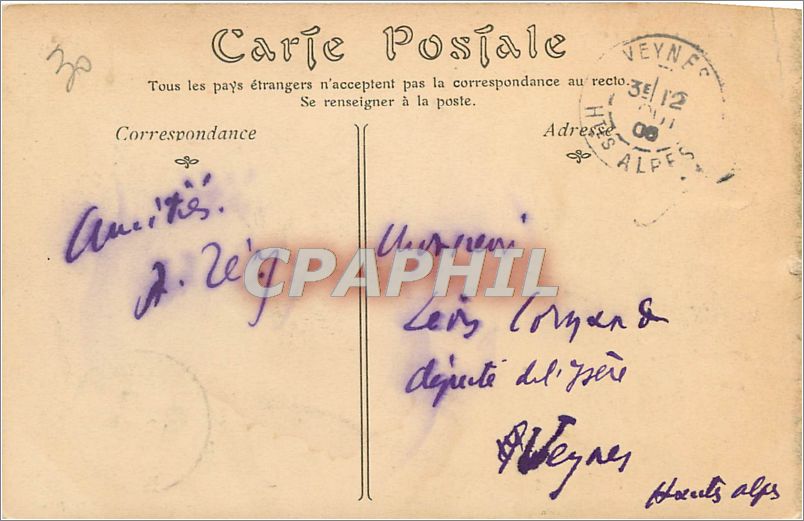 Carte Postale
30
Tous les pays étrangers n'acceptent pas la correspondance au recto.
Se renseigner à la poste.
Correspondance
Adresse
VEYNES
3E/12
08
HTES ALPES
Amitiés.
A.
CPAPHIL
Monsieur
Léon
député de l'Isère
Veynes
Hautes alpes